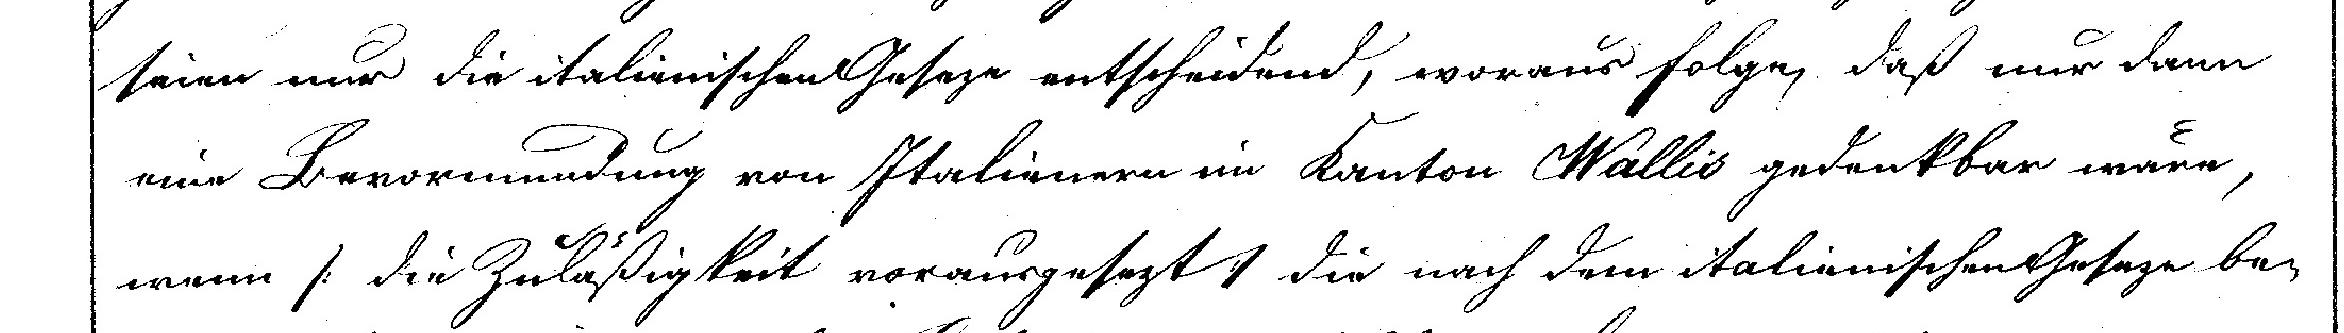 seien nur die italienischen Geseze entscheidend, woraus folge, daß nur dann
eine Bevormundung von Italienern im Kanton Wallis gedenkbar wäre,
wenn /: die Zuläßigkeit vorausgesezt :/ die nach dem italienischen Geseze be-